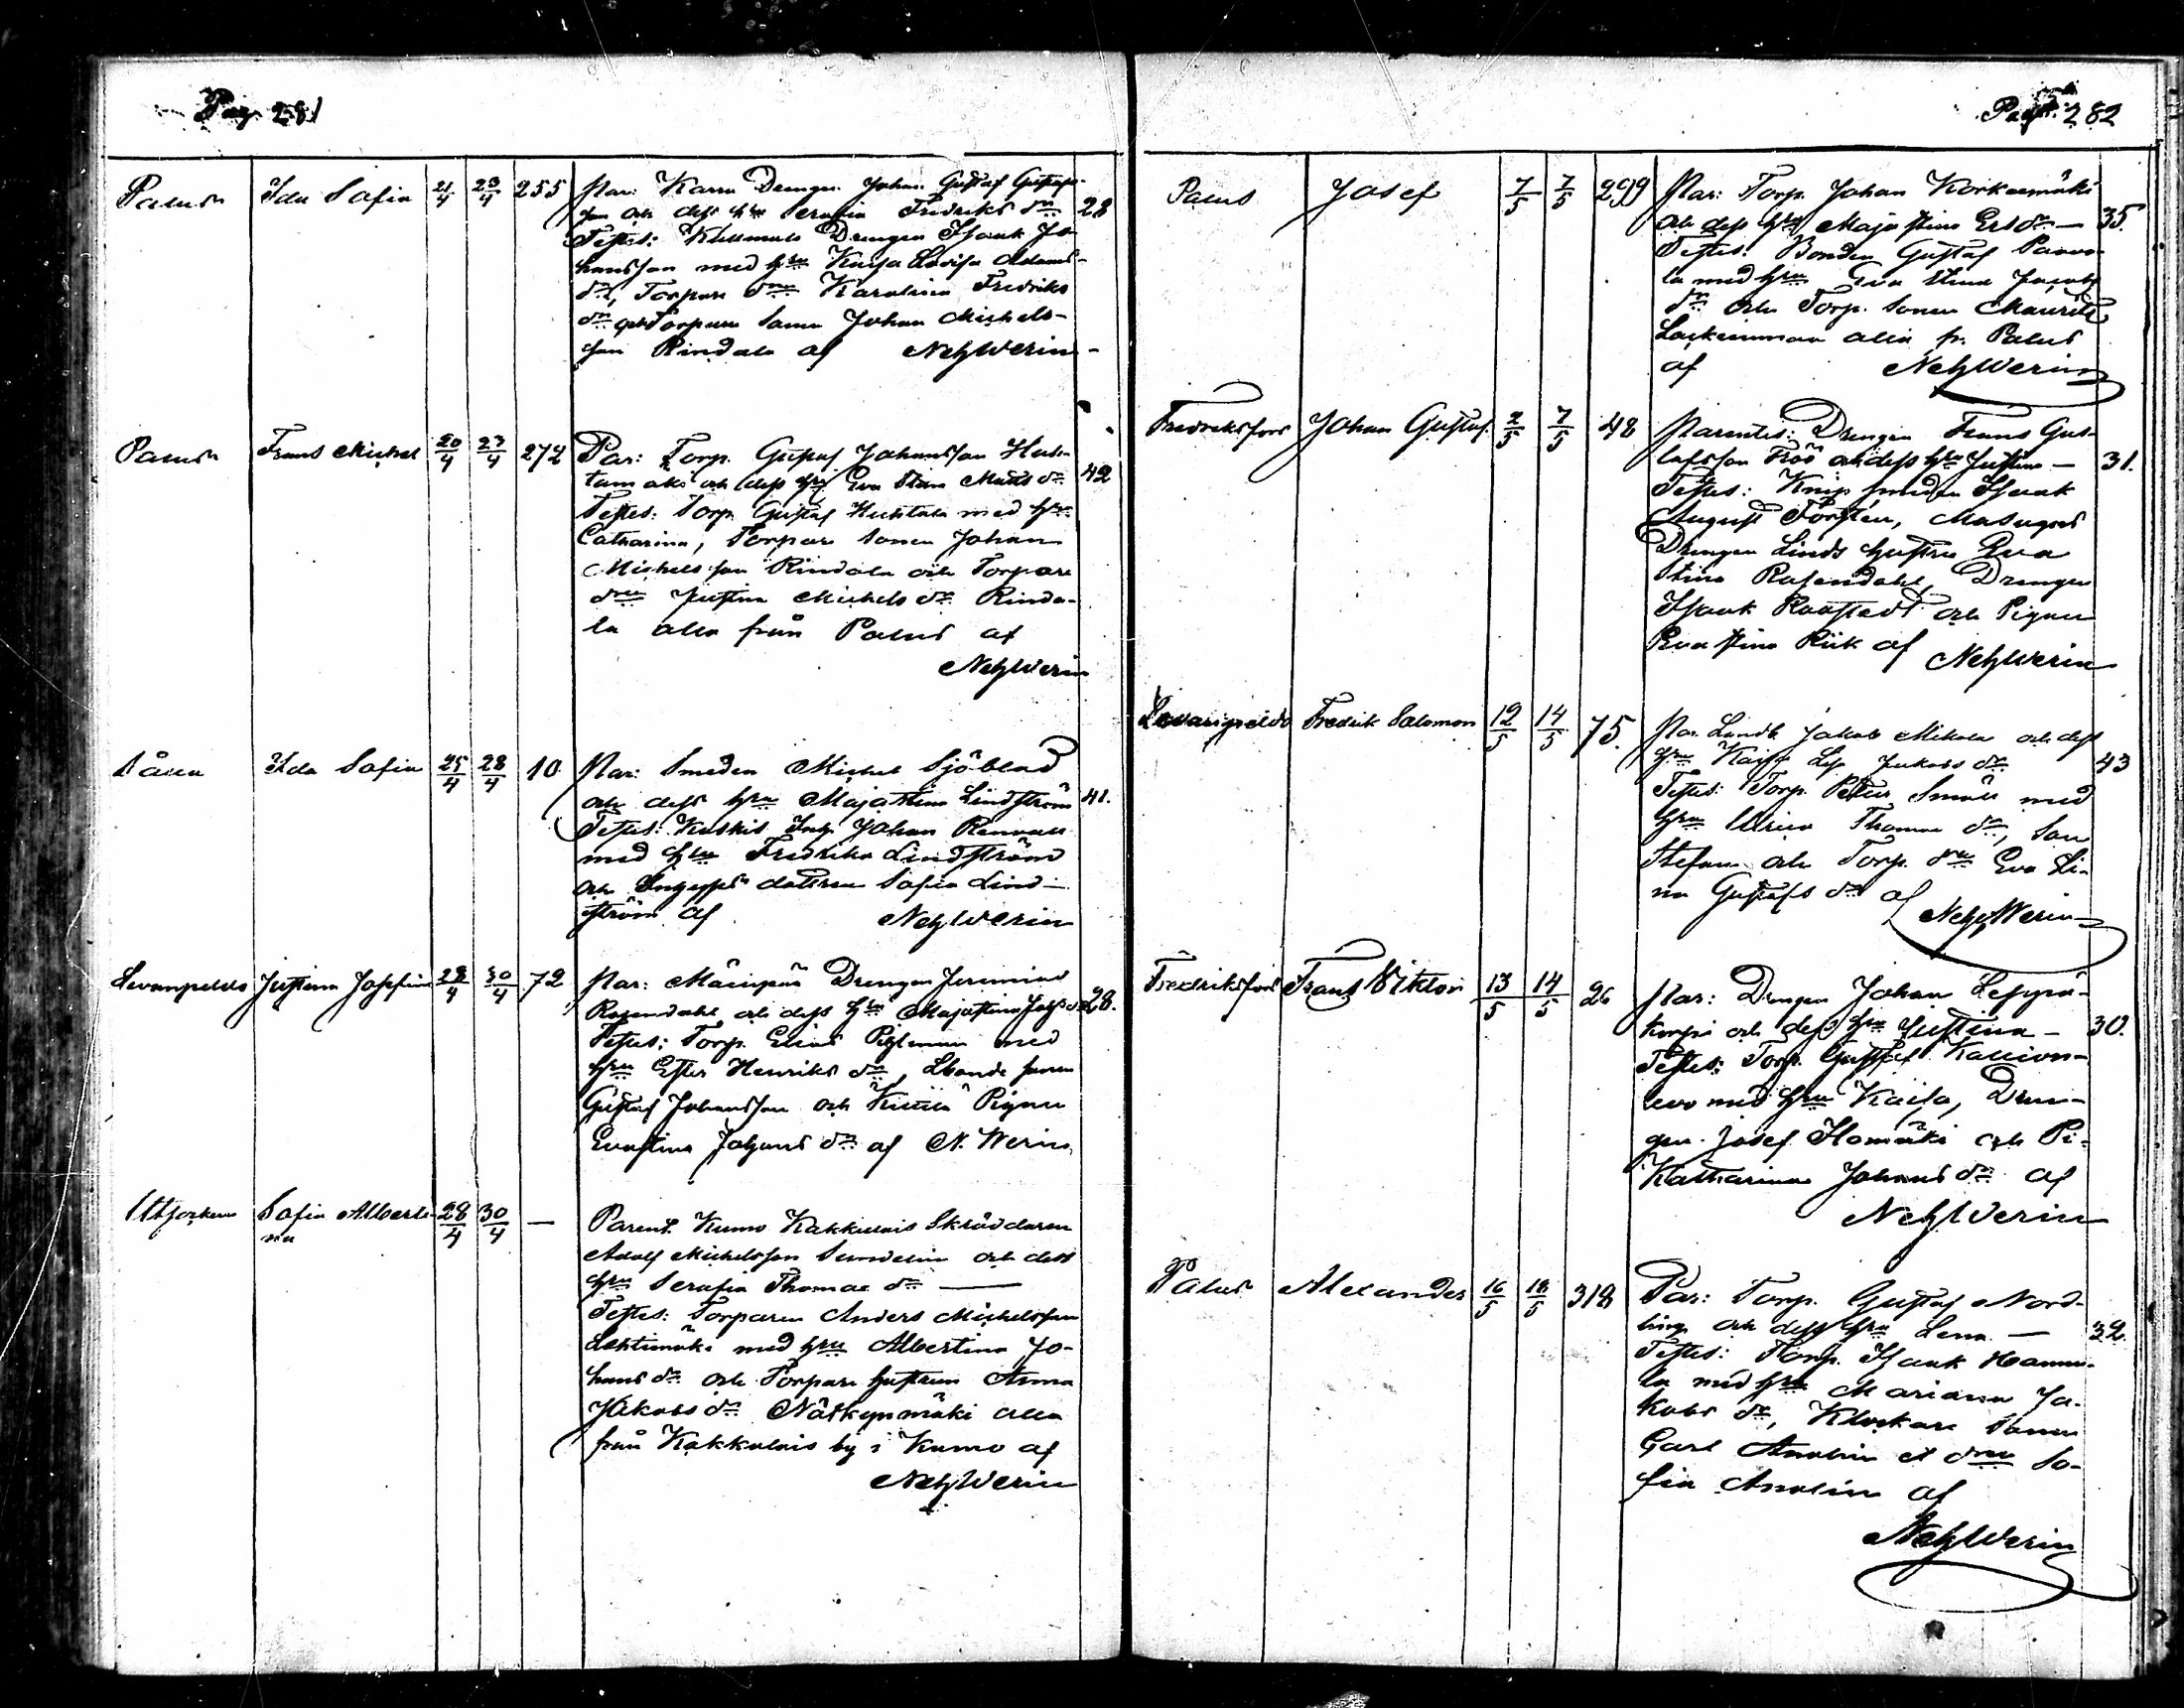 Pag 281
Palus Ida Sofia 21/4 23/4 255 Par: Karra Drengen Johan Gustaf Gustafs-
son och dess hru Serafia Fredriks dr 28
Testes: Drengen Isaak Jo-
hansson med hru Kaisa Lovisa Adams-
dr, Torpare dren Karolina Fredriks
dr och Torpare sonen Johan Michels-
son Rindala af NehlWerin
Palus Frans Michel 20/4 23/4 272 Par: Torp. Gustaf Johansson Huh-
tamaki och dess hru Eva Stina Matts dr 42
Testes: Torp. Gustaf Huhtala med hru
Catharina, Torpare sonen Johan
Michelsson Rindala och Torpare
dren Justina Michels dr Rinda-
la alla från Palus af
NehlWerin
Ida Sofia 25/4 28/4 10 Par: Smeden Michel Sjöblad
och dess hru Maja Stina Lindström 41.
Testes: Kuskis Inh. Johan
med hru Fredrika Lindström
och dottren Sofia Lind-
ström af NehlWerin
Levanpelds Justina Josefina 28/4 30/4 72 Par: Drengen Jeremias
Rosendahl och dess hru Maja Stina Johs dr 28.
Testes: Torp. Elias med
hru Ester Henriks dr, sonen
Gustaf Johansson och Pigan
Eva Stina Johans dr af N. Werin
Utsocken Sofia Alberti- 28/4 30/4 —
na Parent. Kumo Kakkulais Skräddaren
Adolf Michelsson Sundelin och dess
hru Serafia Thomae dr —
Testes: Torparen Anders Michelsson
Lehtimäki med hru Albertina Jo-
hans dr och Torpare hustrun Anna
Jakobs dr Nätkynmäki alla
från Kakkulais by i Kumo af
NehlWerin
Pag. 282
Palus Josef 7/5 7/5 299 Par: Torp. Johan Korkeemäki
och dess hru Maja Stina Ers dr — 35.
Testes: Bonden Gustaf Paavo-
la med hru Eva Stina Jacobs
dr och Torp. sonen Maurits
alla fr. Palus
af NehlWerin
Fredriksfors Johan Gustaf 2/5 7/5 48 Parentes: Drengen Frans Gus-
tafsson och dess hru Justina — 31.
Testes: Knipsmeden Isaak
August Forsten, Masugns
Drengen Linds hustru Eva
Stina Rosendahl, Drengen
Isaak och Pigan
Eva Stina Riik af NehlWerin
Fredrik Salomon 12/5 14/5 75. Par. Landb. Jakob Mikola och dess
hru Kaisa Lis. Jakobs dr 43
Testes: Torp. Petter Små med
hru Ulrica Thomae dr, Son
Stefan och Torp. dren Eva Li-
na Gustafs dr af NehlWerin
Fredriksfors Frans Viktor 13/5 14/5 26 Par: Drengen Johan Leppä-
korpi och dess hru Justina — 30.
Testes: Torp. Gustaf Kallion-
med hru Kaisa, Dren-
gen Josef Ilomäki och Pi-
Katharina Johans dr af
NehlWerin
Palus Alexander 16/5 18/5 318 Par: Torp. Gustaf Nord-
ling och dess hru Lena — 32.
Testes: Torp. Isaak Hannu-
la med hru Mariana Ja-
kobs dr, Klockare sonen
Carl Amolin et dren So-
fia Amolin af
NehlWerin